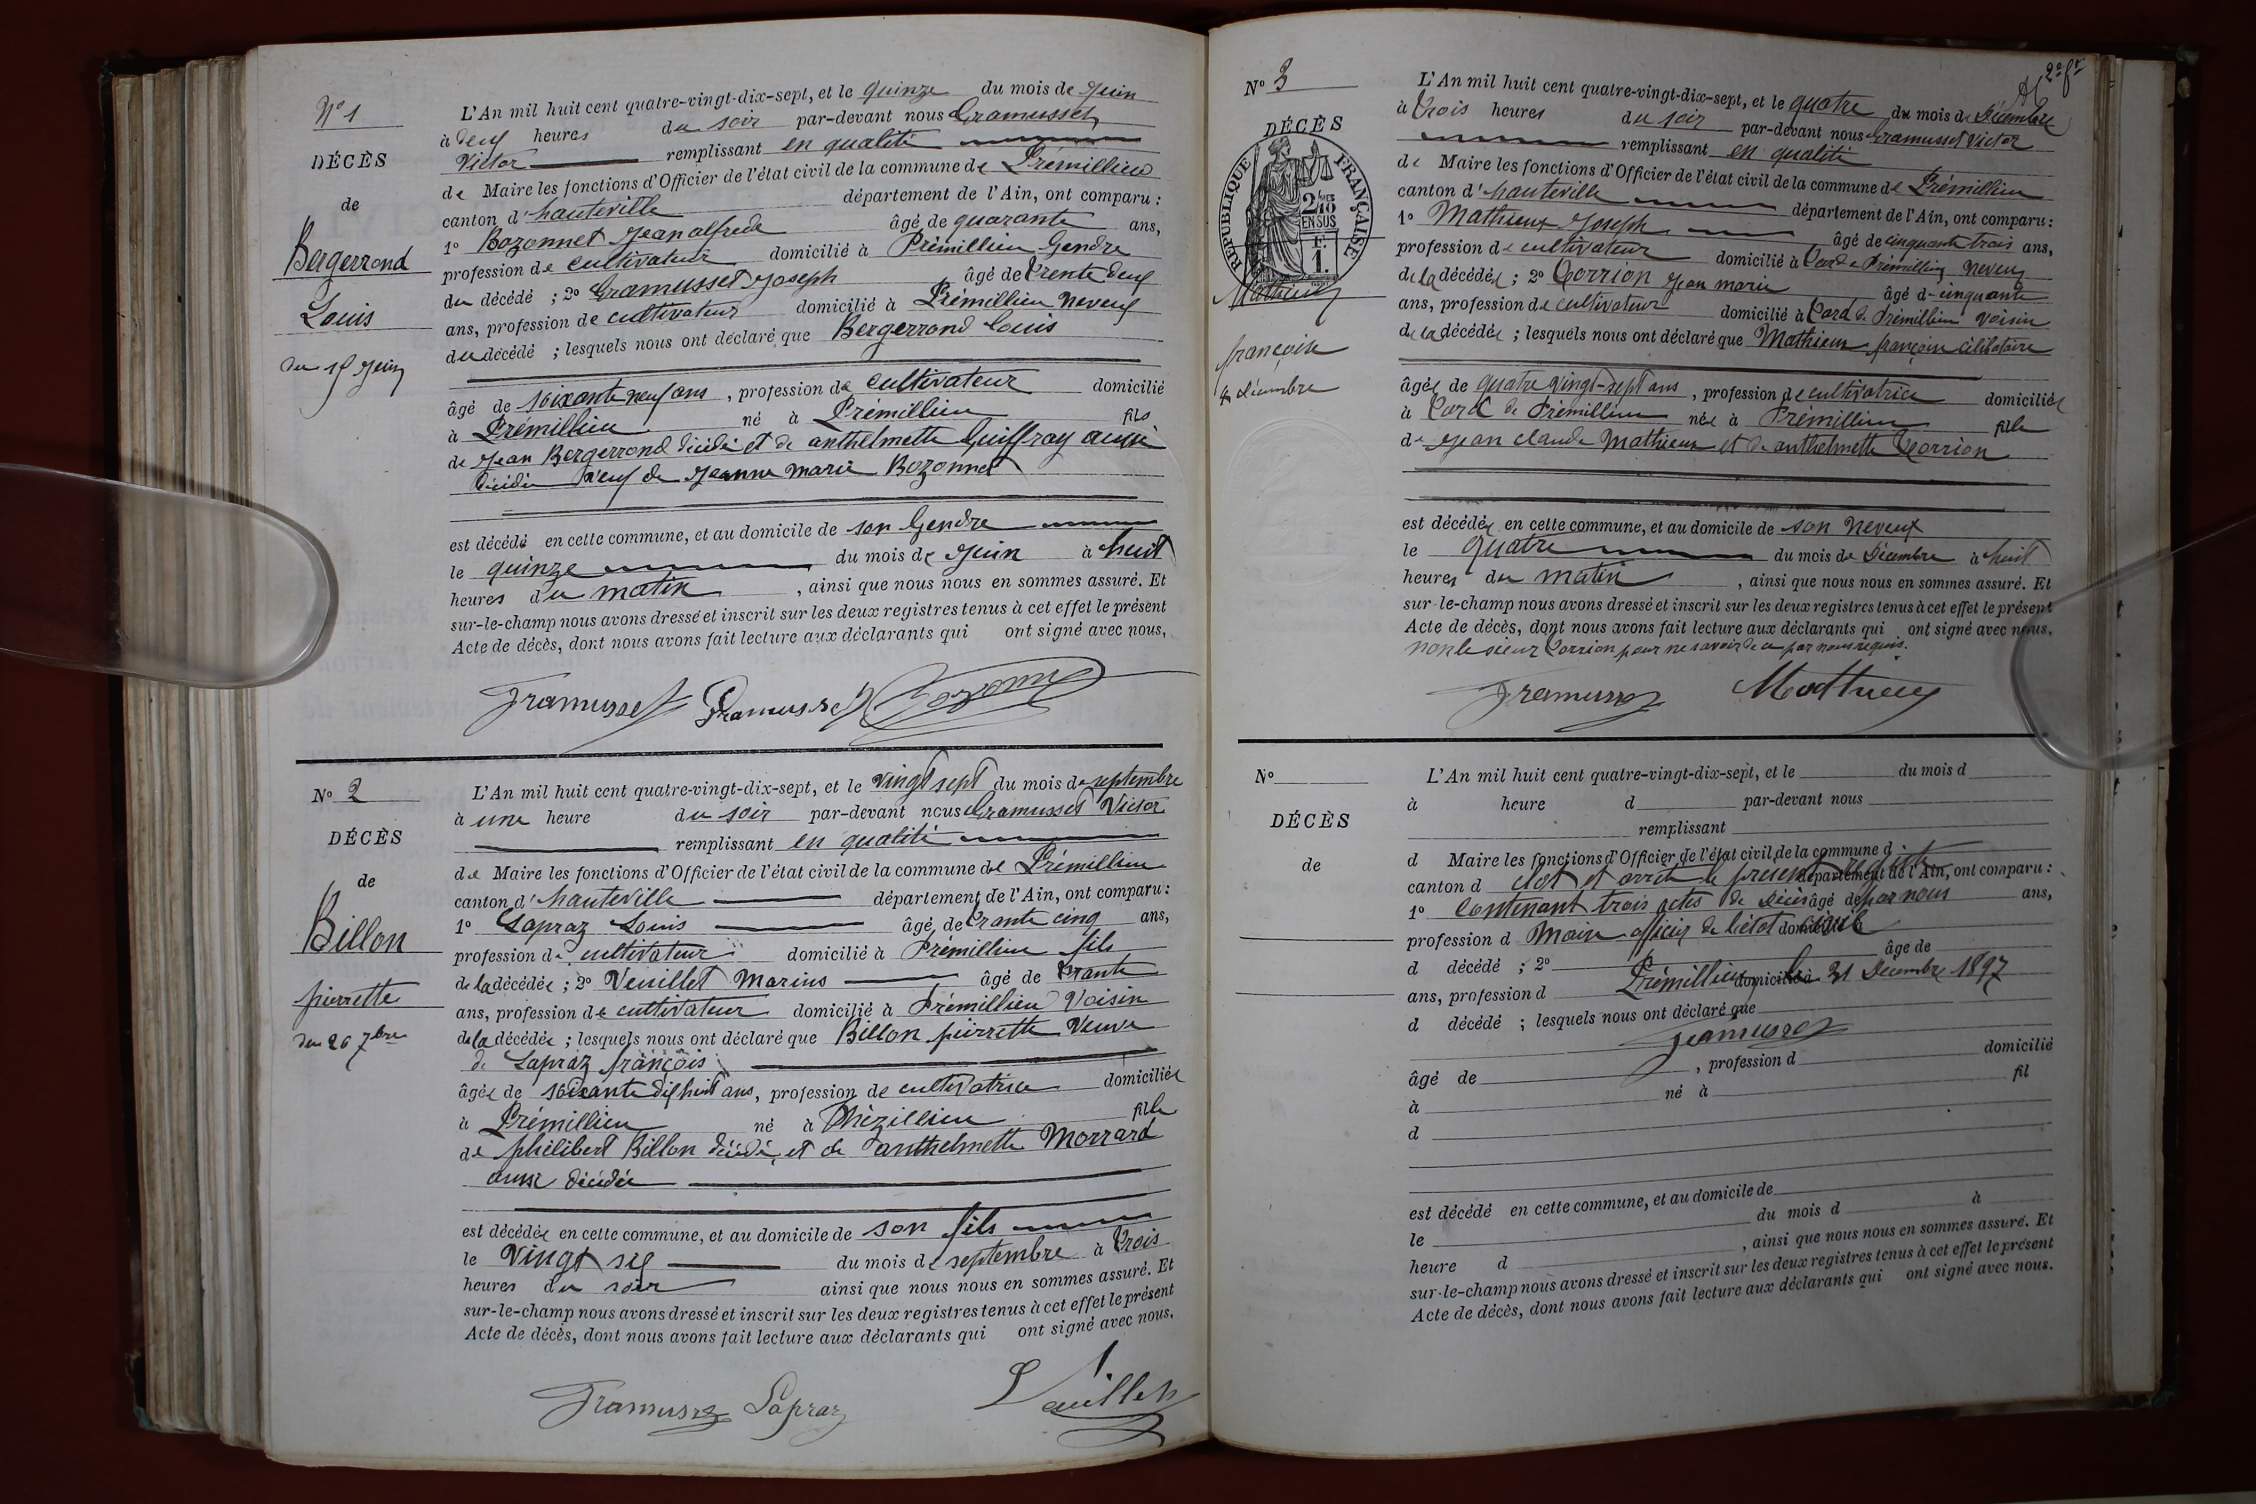 N° 1
DÉCÈS
de
Bergerrond
Louis
du 15 juin
L'An mil huit cent quatre-vingt-dix-sept, et le quinze du mois de juin
à deux heures du soir par-devant nous Gramusset
Victor remplissant en qualité
de Maire les fonctions d'Officier de l'état civil de la commune de Prémillieu
canton d'hauteville département de l'Ain, ont comparu :
1° Bozonnet jean alfrede âgé de quarante ans,
profession de cultivateur domicilié à Prémillieu Gendre
du décédé ; 2° Gramusset joseph âgé de trente deux
ans, profession de cultivateur domicilié à Prémillieu neveux
du décédé ; lesquels nous ont déclaré que Bergerrond louis
âgé de soixante neuf ans, profession de cultivateur domicilié
à Prémillieu né à Prémillieu fils
de jean Bergerrond décédé et de anthelmette Guiffray aussi
décédée veuf de jeanne marie Bozonnet
est décédé en cette commune, et au domicile de son Gendre
le quinze du mois de juin à huit
heures du matin, ainsi que nous nous en sommes assuré. Et
sur-le-champ nous avons dressé et inscrit sur les deux registres tenus à cet effet le présent
Acte de décès, dont nous avons fait lecture aux déclarants qui ont signé avec nous,
Gramusset Gramusset Bozonnet
N° 2
DÉCÈS
de
Billon
pierrette
du 26 7bre
L'An mil huit cent quatre-vingt-dix-sept, et le vingt sept du mois de septembre
à une heure du soir par-devant nous Gramusset Victor
remplissant en qualité
de Maire les fonctions d'Officier de l'état civil de la commune de Prémillieu
canton d'hauteville département de l'Ain, ont comparu :
1° Lapraz Louis âgé de trante cinq ans,
profession de cultivateur domicilié à Prémillieu fils
de la décédée ; 2° Veuillet Marius âgé de trante
ans, profession de cultivateur domicilié à Prémillieu Voisin
de la décédée ; lesquels nous ont déclaré que Billon pierrette Veuve
de Lapraz françois
âgée de soixante dix huit ans, profession de cultivatrice domiciliée
à Prémillieu né à Thézillieu fille
de philibert Billon décédé et de anthelmette Morrard
aussi décédée
est décédée en cette commune, et au domicile de son fils
le vingt six du mois de septembre à trois
heures du soir ainsi que nous nous en sommes assuré. Et
sur-le-champ nous avons dressé et inscrit sur les deux registres tenus à cet effet le présent
Acte de décès, dont nous avons fait lecture aux déclarants qui ont signé avec nous,
Gramusset Lapraz Veuillet
2e ft
N° 3
DÉCÈS
RÉPUBLIQUE FRANÇAISE
2/10 EN SUS
F. 1.
Mathieux
françoise
4 décembre
L'An mil huit cent quatre-vingt-dix-sept, et le quatre du mois de décembre
à trois heures du soir par-devant nous Gramusset Victor
remplissant en qualité
de Maire les fonctions d'Officier de l'état civil de la commune de Prémillieu
canton d'hauteville département de l'Ain, ont comparu :
1° Mathieux joseph âgé de cinquante trois ans,
profession de cultivateur domicilié à de Prémillieu neveux
de la décédée ; 2° Corrion jean marie âgé de cinquante
ans, profession de cultivateur domicilié à de Prémillieu voisin
de la décédée ; lesquels nous ont déclaré que Mathieux françoise célibataire
âgée de quatre vingt-sept ans, profession de cultivatrice domiciliée
à de Prémillieu née à Prémillieu fille
de jean claude Mathieux et de anthelmette Corrion
est décédée en cette commune, et au domicile de son neveux
le quatre du mois de décembre à huit
heures du matin, ainsi que nous nous en sommes assuré. Et
sur-le-champ nous avons dressé et inscrit sur les deux registres tenus à cet effet le présent
Acte de décès, dont nous avons fait lecture aux déclarants qui ont signé avec nous,
non le sieur Corrion pour ne savoir de ce par nous requis.
Gramusset Mathieux
N°
DÉCÈS
de
L'An mil huit cent quatre-vingt-dix-sept, et le du mois d
à heure d par-devant nous
remplissant
d Maire les fonctions d'Officier de l'état civil de la commune d
canton d département de l'Ain, ont comparu :
clot et arrêté le présent registre
1° âgé de ans,
contenant trois actes de décès par nous
profession d domicilié à
Maire officier de l'état civil
d décédé ; 2° âgé de
Prémillieu le 31 décembre 1897
ans, profession d domicilié à
d décédé ; lesquels nous ont déclaré que
Gramusset
âgé de , profession d domicilié
à né à fil
d
est décédé en cette commune, et au domicile de
le du mois d à
heure d , ainsi que nous nous en sommes assuré. Et
sur-le-champ nous avons dressé et inscrit sur les deux registres tenus à cet effet le présent
Acte de décès, dont nous avons fait lecture aux déclarants qui ont signé avec nous.